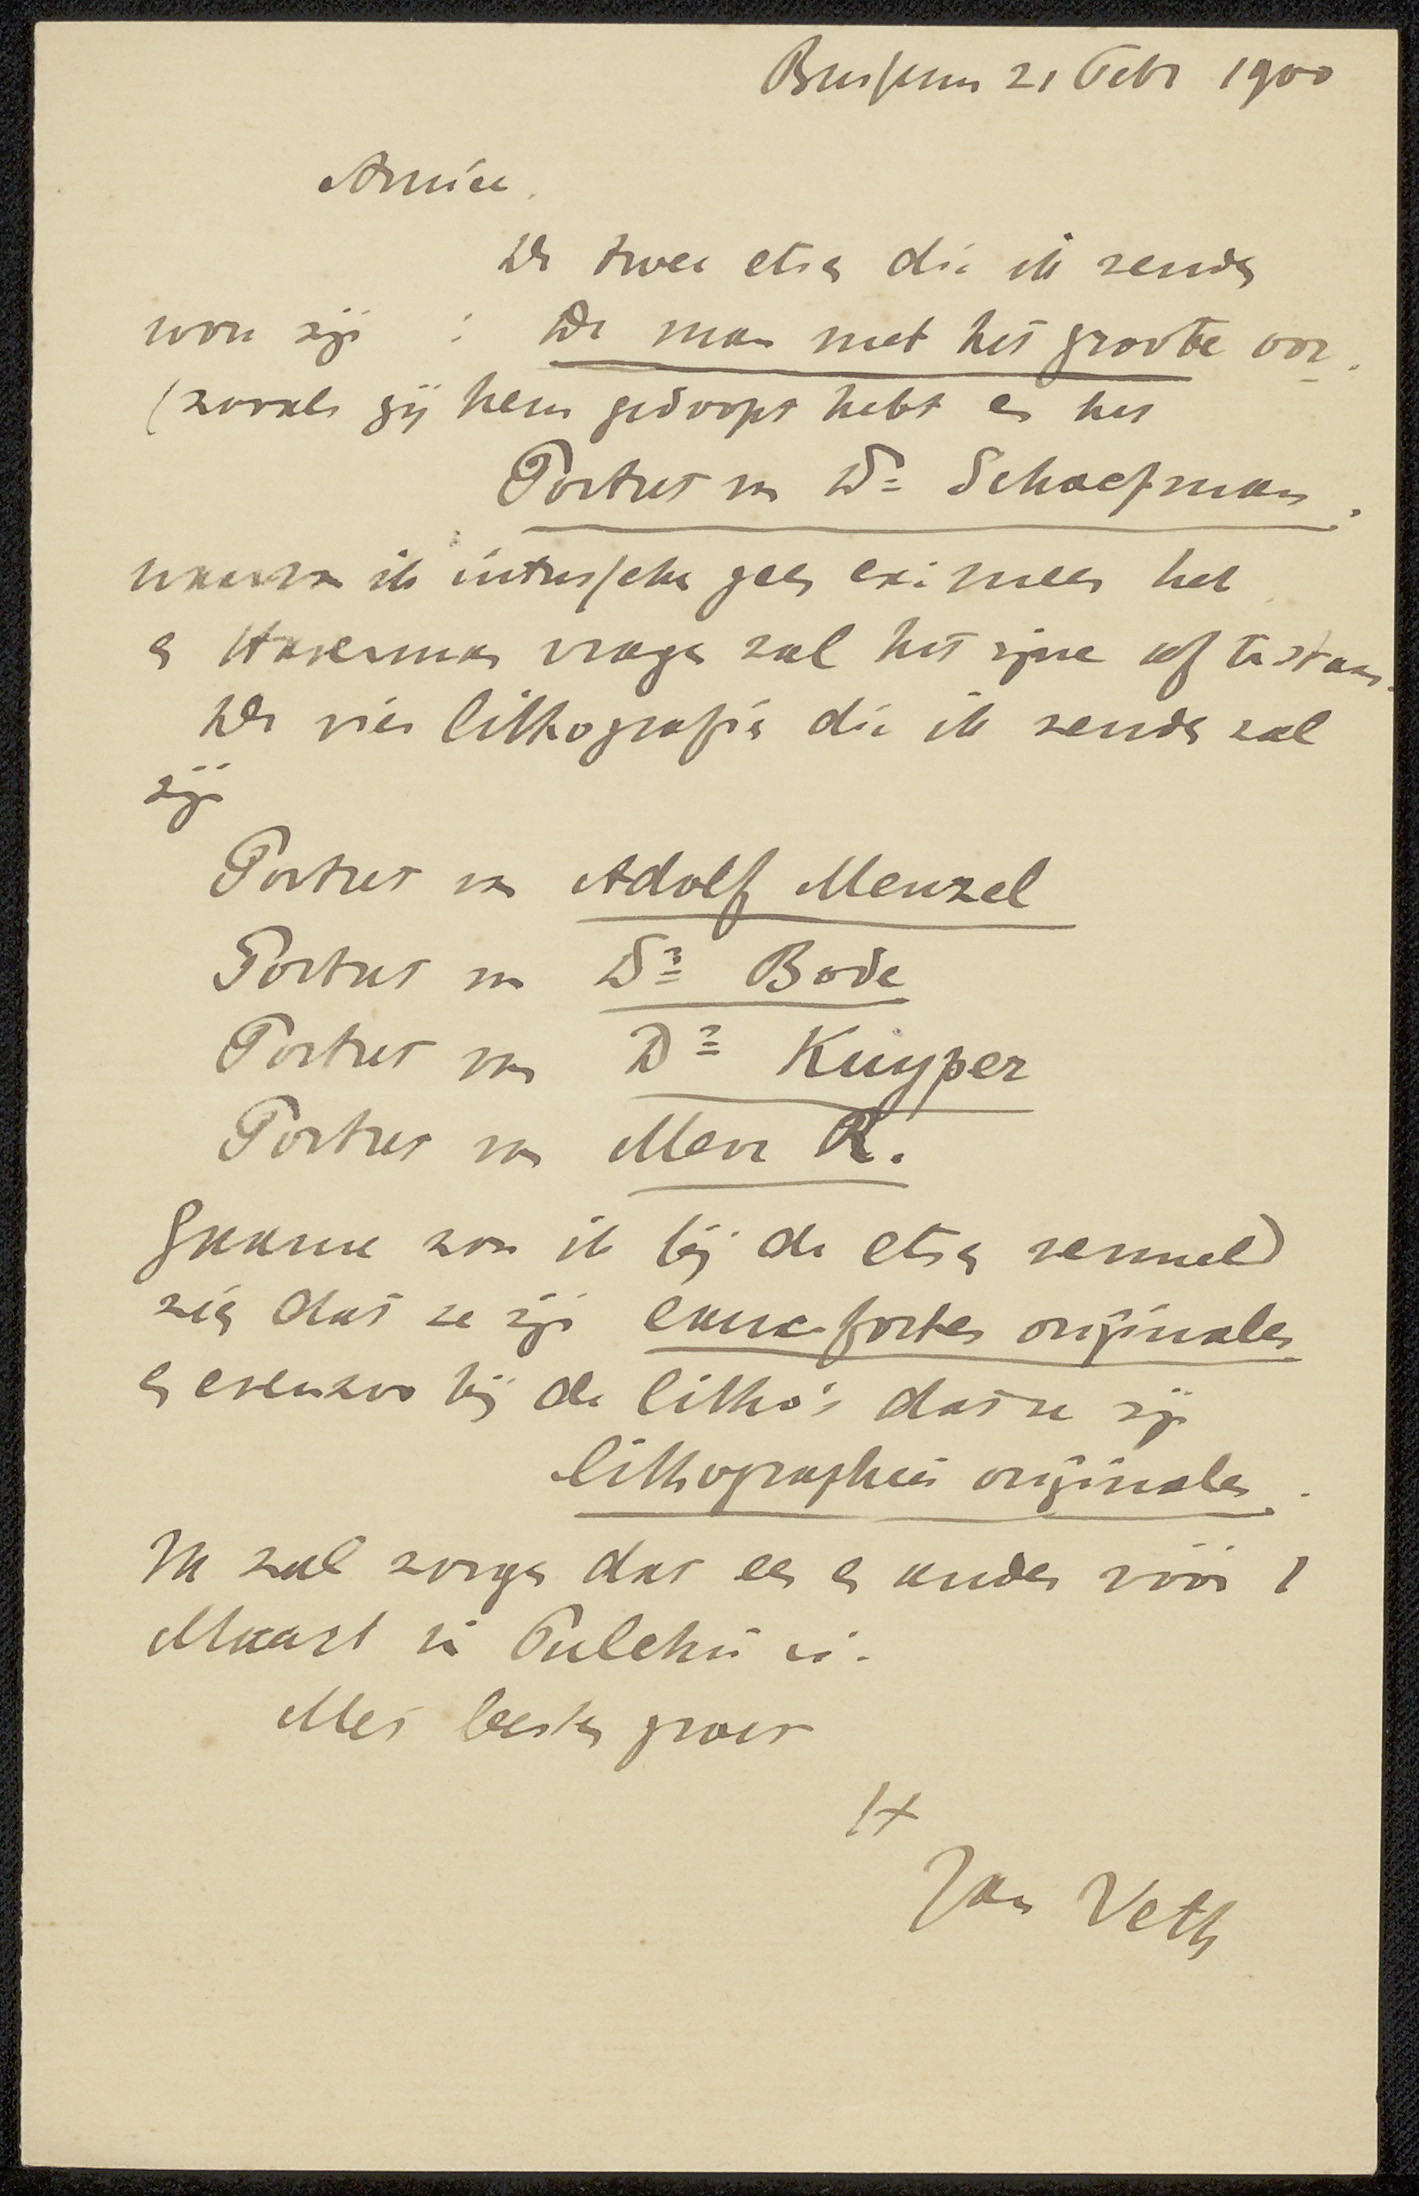 Bussum 21 Febr 1900
Amice.
De twee etsen die ik zenden
wou zijn : De man met het groote oor.
(zooals gij hem gedoopt hebt en het
Portret van Dr Schaepman.
waarvan ik intusschen geen eximplaar heb
en Haverman vragen zal het zijne af te staan.
De vier lithografiën die ik zenden zal
zijn
Portret van Adolf Menzel
Portret van Dr Bode
Portret van Dr Kuyper
Portret van Mevr R.
Gaarne zou ik bij de etsen vermeld
zien dat ze zijn eaux-fortes originales
en evenzoo bij de litho's dat ze zijn
lithographies originales.
Ik zal zorgen dat een en ander vóór 1
Maart in Pulchri is.
Met besten groet
Jan Veth